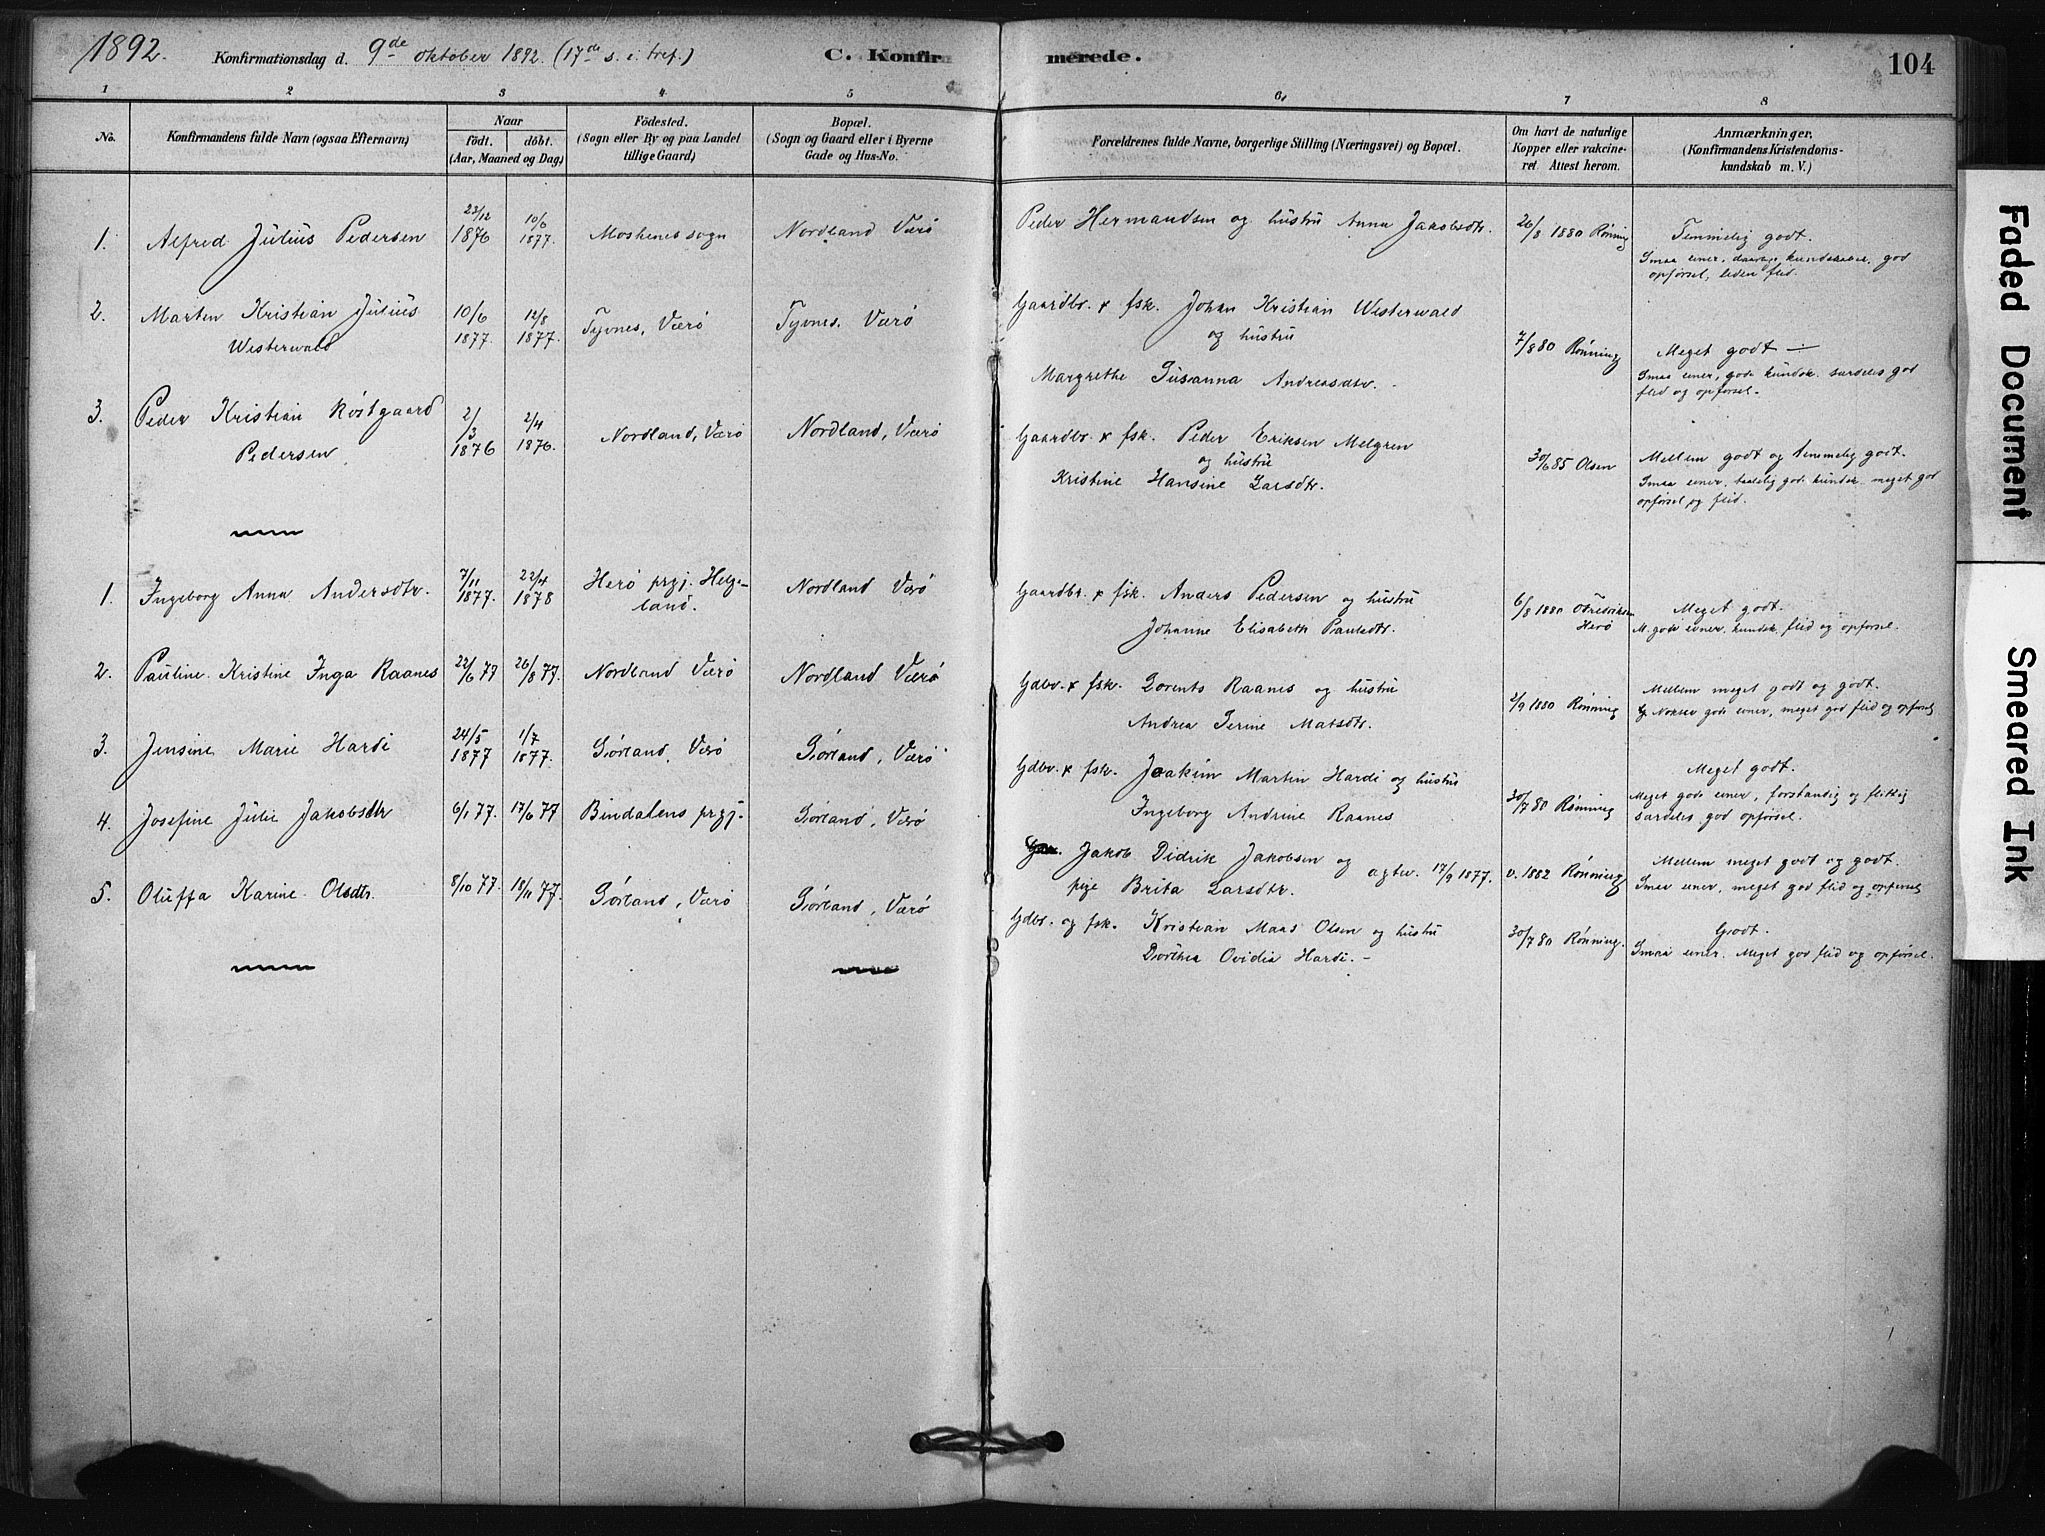 1892. Konfirmationsdag d. 9de oktober 1892. (17de s. e. tref.) C. Konfirmerede. 104
1 2 3 4 5 6 7 8
No. Konfirmandens fulde Navn (ogsaa Efternavn)
Naar
födt. döbt.
(Aar, Maaned og Dag)
Födested.
(Sogn eller By og paa Landet
tillige Gaard)
Bopæl.
(Sogn og Gaard eller i Byerne
Gade og Hus-No.
Forældrenes fulde Navne, borgerlige Stilling (Næringsvei) og Bopæl.
Om havt de naturlige
Kopper eller vakcine-
ret Attest herom.
Anmærkninger.
(Konfirmandens Kristendoms-
kundskab m. V.)
1. Alfred Julius Pedersen 23/12 1876 10/6 1877. Moskenes sogn Nordland Værö Peder Hermandsen og hustru Anna Jakobsdtr. 26/8 1880 Rønning Temmelig godt.
Smaa evner, daarlige kundskaber, god
opførsel, liden flid.
2. Marten Kristian Julius
Westerwald 10/6 1877. 12/8 1877. Tyvnes, Værö Tyvnes, Værö Gaardbr. & fsk. Johan Kristian Westerwald
og hustru
Margrethe Susanna Andreasdtr. 7/8 80 Rønning Meget godt ÷
Smaa evner, gode kundsk. særdeles god
flid og opførsel.
3. Peder Kristian Röstgaard
Pedersen 2/3 1876 2/4 1876. Nordland, Værö Nordland, Værö Gaardbr. & fsk. Peder Eriksen Melgren
og hustru
Kristine Hansine Larsdtr. 30/6 85 Olsen Mellem godt og temmelig godt.
Smaa evner, taalelig gode kundsk. meget god
opførsel og flid.
1. Ingeborg Anna Andersdtr. 7/11 1877. 22/4 1878 Herö prgj. Helge-
land. Nordland Værö Gaardbr. & fsk. Anders Pedersen og hustru
Johanne Elisabeth Paulsdtr. 6/8 1880 O Fredriksen
Herö Meget godt.
M. gode evner, kundsk, flid og opførsel.
2. Pauline Kristine Inga Raanes 22/6 77 26/8 77. Nordland Værö Nordland Værö Gdbr. & fsk. Lorents Raanes og hustru
Andrea Serine Matsdtr. 2/9 1880 Rønning Mellem meget godt og godt.
Nokså gode evner, meget god flid og opførsel
3. Jensine Marie Hardi 24/5 1877 1/7 1877. Sörland, Værö Sörland, Værö Gdbr. & fsk. Joakim Martin Hardi og hustru
Ingeborg Andrine Raanes 30/7 80 Rønning Meget godt.
Meget gode evner, forstandig og flittig
særdeles god opførsel.
4. Josefine Julie Jakobsdtr 6/1 77. 17/6 77 Bindalens prgj. Sörland, Værö Jakob Didrik Jakobsen og
pige Brita Larsdtr. agtev. 17/9 1877. v. 1882 Rønning Mellem meget godt og godt.
Smaa evner, meget god flid og opførsel
5. Oluffa Karine Olsdtr. 8/10 77. 18/11 77. Sörland, Værö Sörland, Værö Gdbr. og fsk. Kristian Maas Olsen og hustru
Dorthea Ovidia Hardi. 30/7 80 Rønning. Godt.
Smaa evner. Meget god flid og opførsel.
Faded Document
Smeared Ink